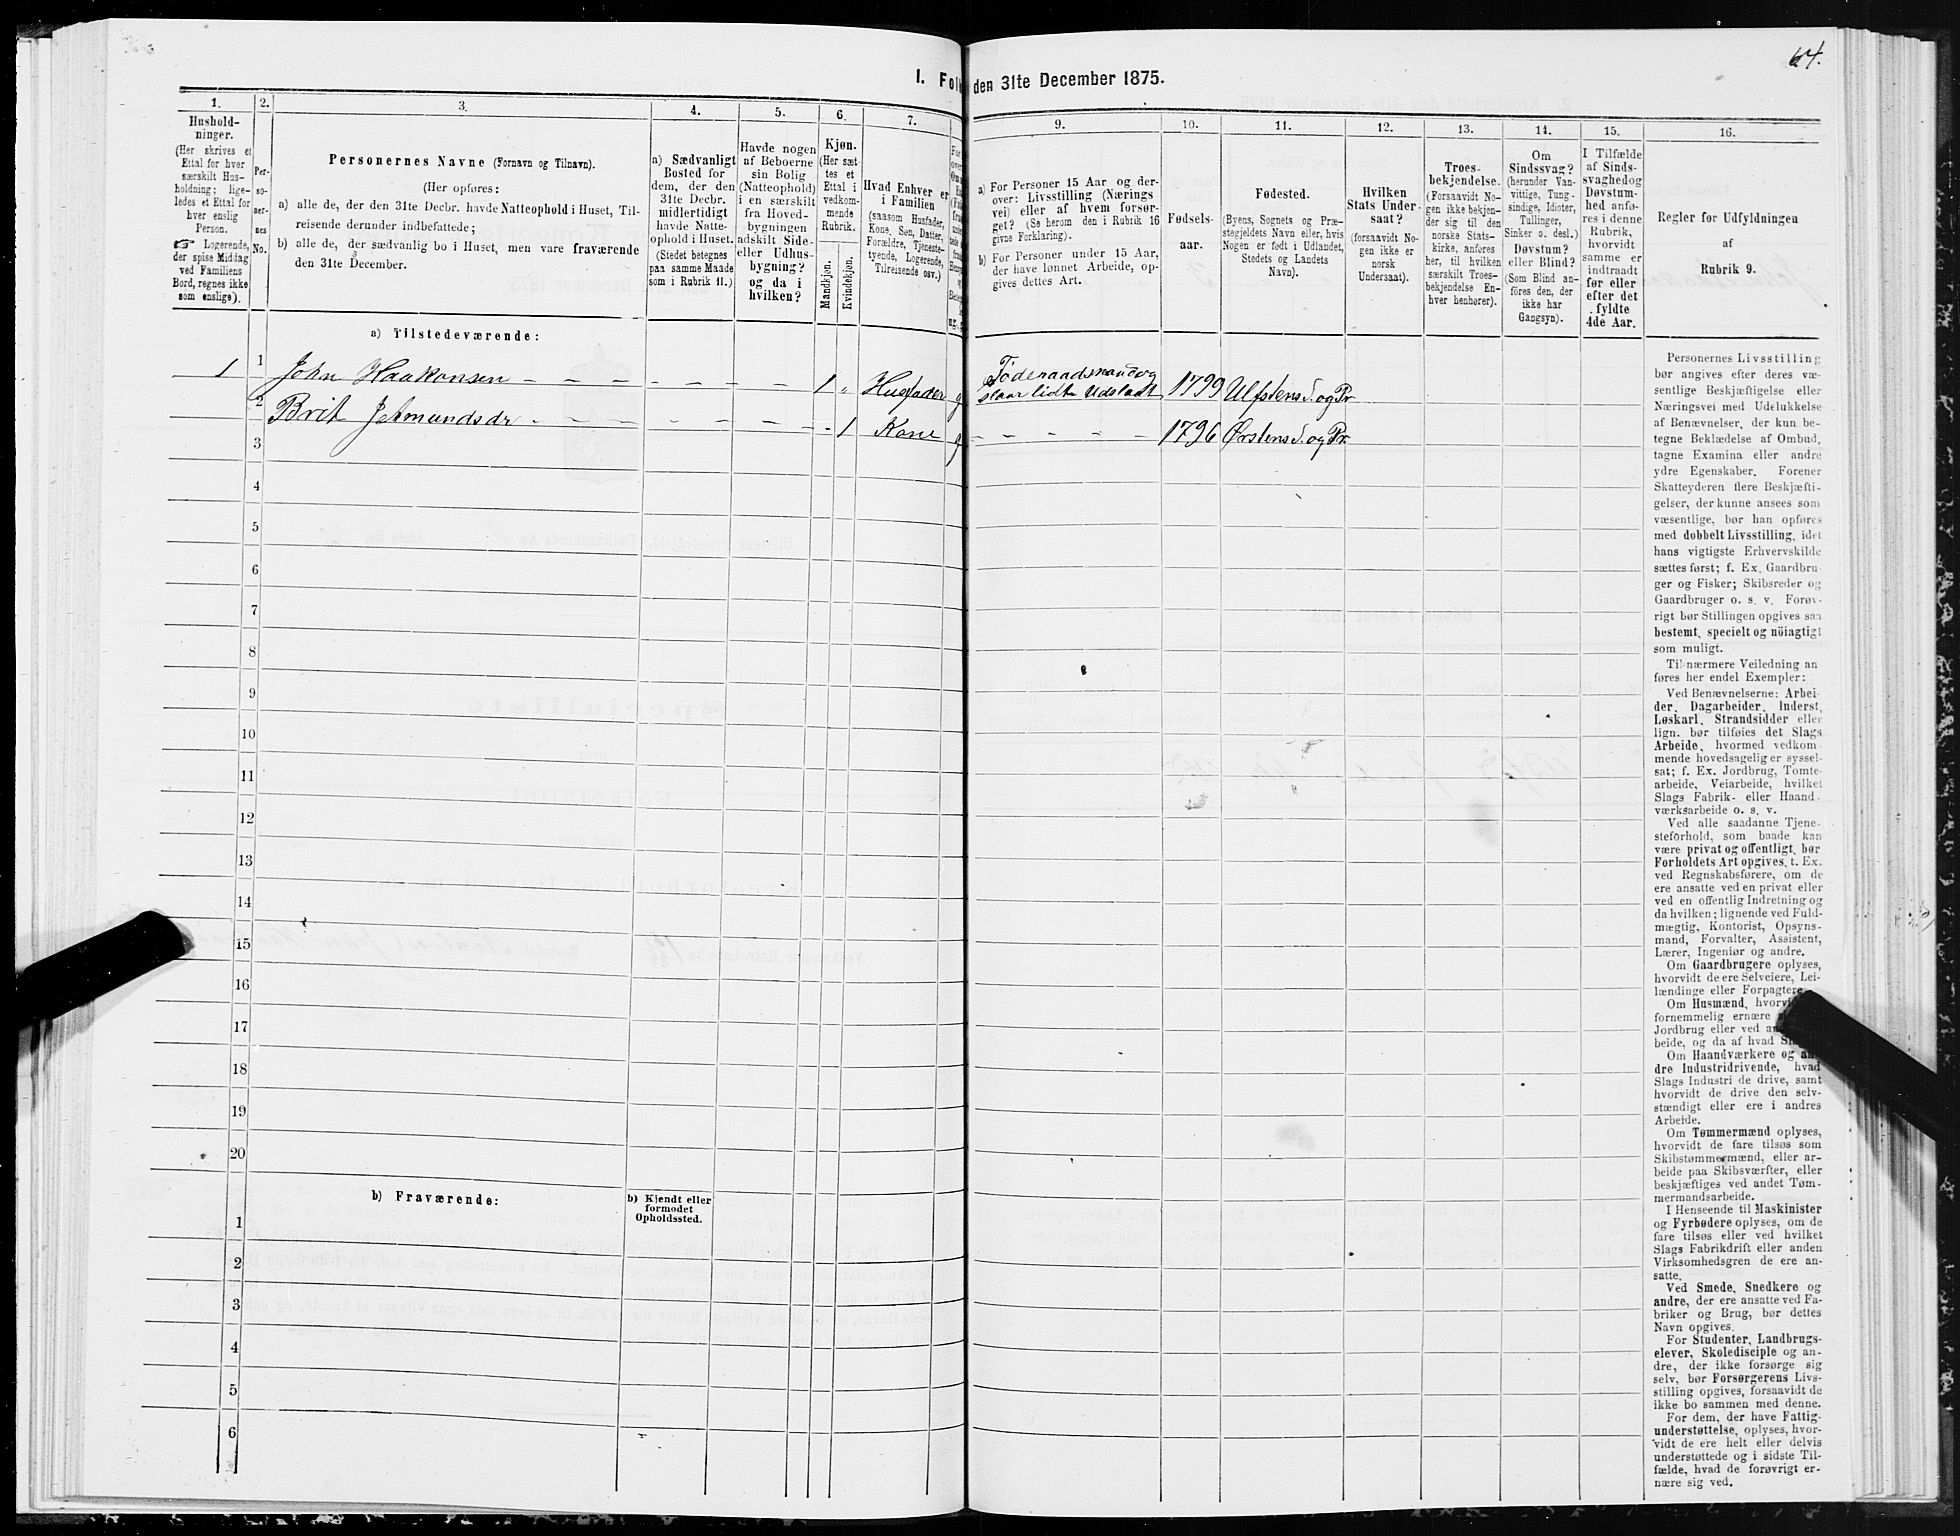 64.
I. Fol
den 31te December 1875.
1.
Hushold-
ninger.
(Her skrives et
Ettal for hver
særskilt Hus-
holdning; lige-
ledes et Ettal for
hver enslig
Person.
Logerende,
der spise Middag
ved Familiens
Bord, regnes ikke
som enslige).
2.
Per-
so-
ner-
nes
No.
3.
Personernes Navne (Fornavn og Tilnavn).
(Her opføres:
a) alle de, der den 31te Decbr. havde Natteophold i Huset, Til-
reisende derunder indbefattede;
b) alle de, der sædvanlig bo i Huset, men vare fraværende
den 31te December.
4.
a) Sædvanligt
Bosted for
dem, der den
31te Decbr.
midlertidigt
havde Natte-
ophold i Huset.
(Stedet betegnes
paa samme Maade
som i Rubrik 11.)
5.
Havde nogen
af Beboerne
sin Bolig
(Natteophold)
i en særskilt
fra Hoved-
bygningen
adskilt Side-
eller Udhus-
bygning?
og da i
hvilken?
6.
Kjøn.
(Her sæt-
tes et
Ettal i
vedkom-
mende
Rubrik.
Mandkjøn.
Kvindekjøn.
7.
Hvad Enhver er
i Familien
(saasom Husfader,
Kone, Søn, Datter,
Forældre, Tjeneste-
tyende, Logerende,
Tilreisende osv.)
9.
a) For Personer 15 Aar og der-
over: Livsstilling (Nærings
vei) eller af hvem forsør-
get? (Se herom den i Rubrik 16
givne Forklaring).
b) For Personer under 15 Aar,
der have lønnet Arbeide, op-
gives dettes Art.
10.
Fødsels-
aar.
11.
Fødested.
(Byens, Sognets og Præ-
stegjeldets Navn eller, hvis
Nogen er født i Udlandet,
Stedets og Landets
Navn).
12.
Hvilken
Stats Under-
saat?
(forsaavidt No-
gen ikke er
norsk
Undersaat).
13.
Troes-
bekjendelse.
(Forsaavidt No-
gen ikke bekjen-
der sig til den
norske Stats-
kirke, anføres
her, til hvilken
særskilt Troes-
bekjendelse En-
hver henhører).
14.
Om
Sindssvag?
(herunder Van-
vittige, Tung-
sindige, Idioter,
Tullinger,
Sinker o. desl.)
Døvstum?
eller Blind?
(Som Blind an-
føres den, der
ikke har
Gangsyn).
15.
I Tilfælde
af Sinds-
svaghed og
Døvstum-
hed anfø-
res i denne
Rubrik,
hvorvidt
samme er
indtraadt
før eller
efter det
fyldte
4de Aar.
16.
Regler for Udfyldningen
af
Rubrik 9.
a) Tilstedeværende:
1 1 John Haakonsen - - - - - 1 „ Husfader g Føderaadsmand og
slaar lidt Udsladt 1799 Ulfstens S. og Pr
2 Brit Jetmundsdr - - - - - - 1 Kone g - - - - - 1796 Ørstens S. og Pr.
3
4
5
6
7
8
9
10
11
12
13
14
15
16
17
18
19
20
b) Fraværende:
b) Kjendt eller
formodet
Opholdssted.
1
2
3
4
5
6
Personernes Livsstilling
bør angives efter deres væ-
sentlige Beskjæftigelse eller
Næringsvei med Udelukkelse
af Benævnelser, der kun be-
tegne Beklædelse af Ombud,
tagne Examina eller andre
ydre Egenskaber. Forener
Skatteyderen flere Beskjæfti-
gelser, der kunne ansees som
væsentlige, bør han opføres
med dobbelt Livsstilling, idet
hans vigtigste Erhvervskilde
sættes først; f. Ex. Gaardbru-
ger og Fisker; Skibsreder og
Gaardbruger o. s. v. Forøv-
rigt bør Stillingen opgives saa
bestemt, specielt og nöiagtigt
som muligt.
Til nærmere Veiledning an
føres her endel Exempler:
Ved Benævnelserne: Arbei-
der, Dagarbeider, Inderst,
Løskarl, Strandsidder eller
lign. bør tilføies det Slags
Arbeide, hvormed vedkom-
mende hovedsagelig er syssel-
sat; f. Ex. Jordbrug, Tomte-
arbeide, Veiarbeide, hvilket
Slags Fabrik- eller Haand-
værksarbeide o. s. v.
Ved alle saadanne Tjene-
steforhold, som baade kan
være privat og offentligt, bør
Forholdets Art opgives, t. Ex.
ved Regnskabsførere, om de
ere ansatte ved en privat eller
ved en offentlig Indretning og
da hvilken; lignende ved Fuld-
mægtig, Kontorist, Opsyns-
mand, Forvalter, Assistent,
Lærer, Ingeniør og andre.
Om Gaardbrugere oplyses,
hvorvidt de ere Selveiere, Lei-
lændinge eller Forpagtere.
Om Husmænd, hvorvi
fornemmelig ernære
Jordbrug eller ved an
beide, og da af hvad S
Om Haandværkere og an-
dre Industridrivende, hvad
Slags Industri de drive, samt
hvorvidt de drive den selv-
stændigt eller ere i andres
Arbeide.
Om Tømmermænd oplyses,
hvorvidt de fare tilsøs som
Skibstømmermænd, eller ar-
beide paa Skibsværfter, eller
beskjæftiges ved andet Tøm-
mermandsarbeide.
I Henseende til Maskinister
og Fyrbødere oplyses, om de
fare tilsøs eller ved hvilket
Slags Fabrikdrift eller anden
Virksomhedsgren de ere an-
satte.
Ved Smede, Snedkere og
andre, der ere ansatte ved Fa-
briker og Brug, bør dettes
Navn opgives.
For Studenter, Landbrugs-
elever, Skoledisciple og an-
dre, der ikke forsørge sig
selv, bør Forsørgerens Livs-
stilling opgives, forsaavidt de
ikke bo sammen med denne.
For dem, der have Fattig-
understøttelse, oplyses, hvor-
vidt de ere helt eller delvis
understøttede og i sidste Til-
fælde, hvad de forøvrigt er-
nære sig ved.